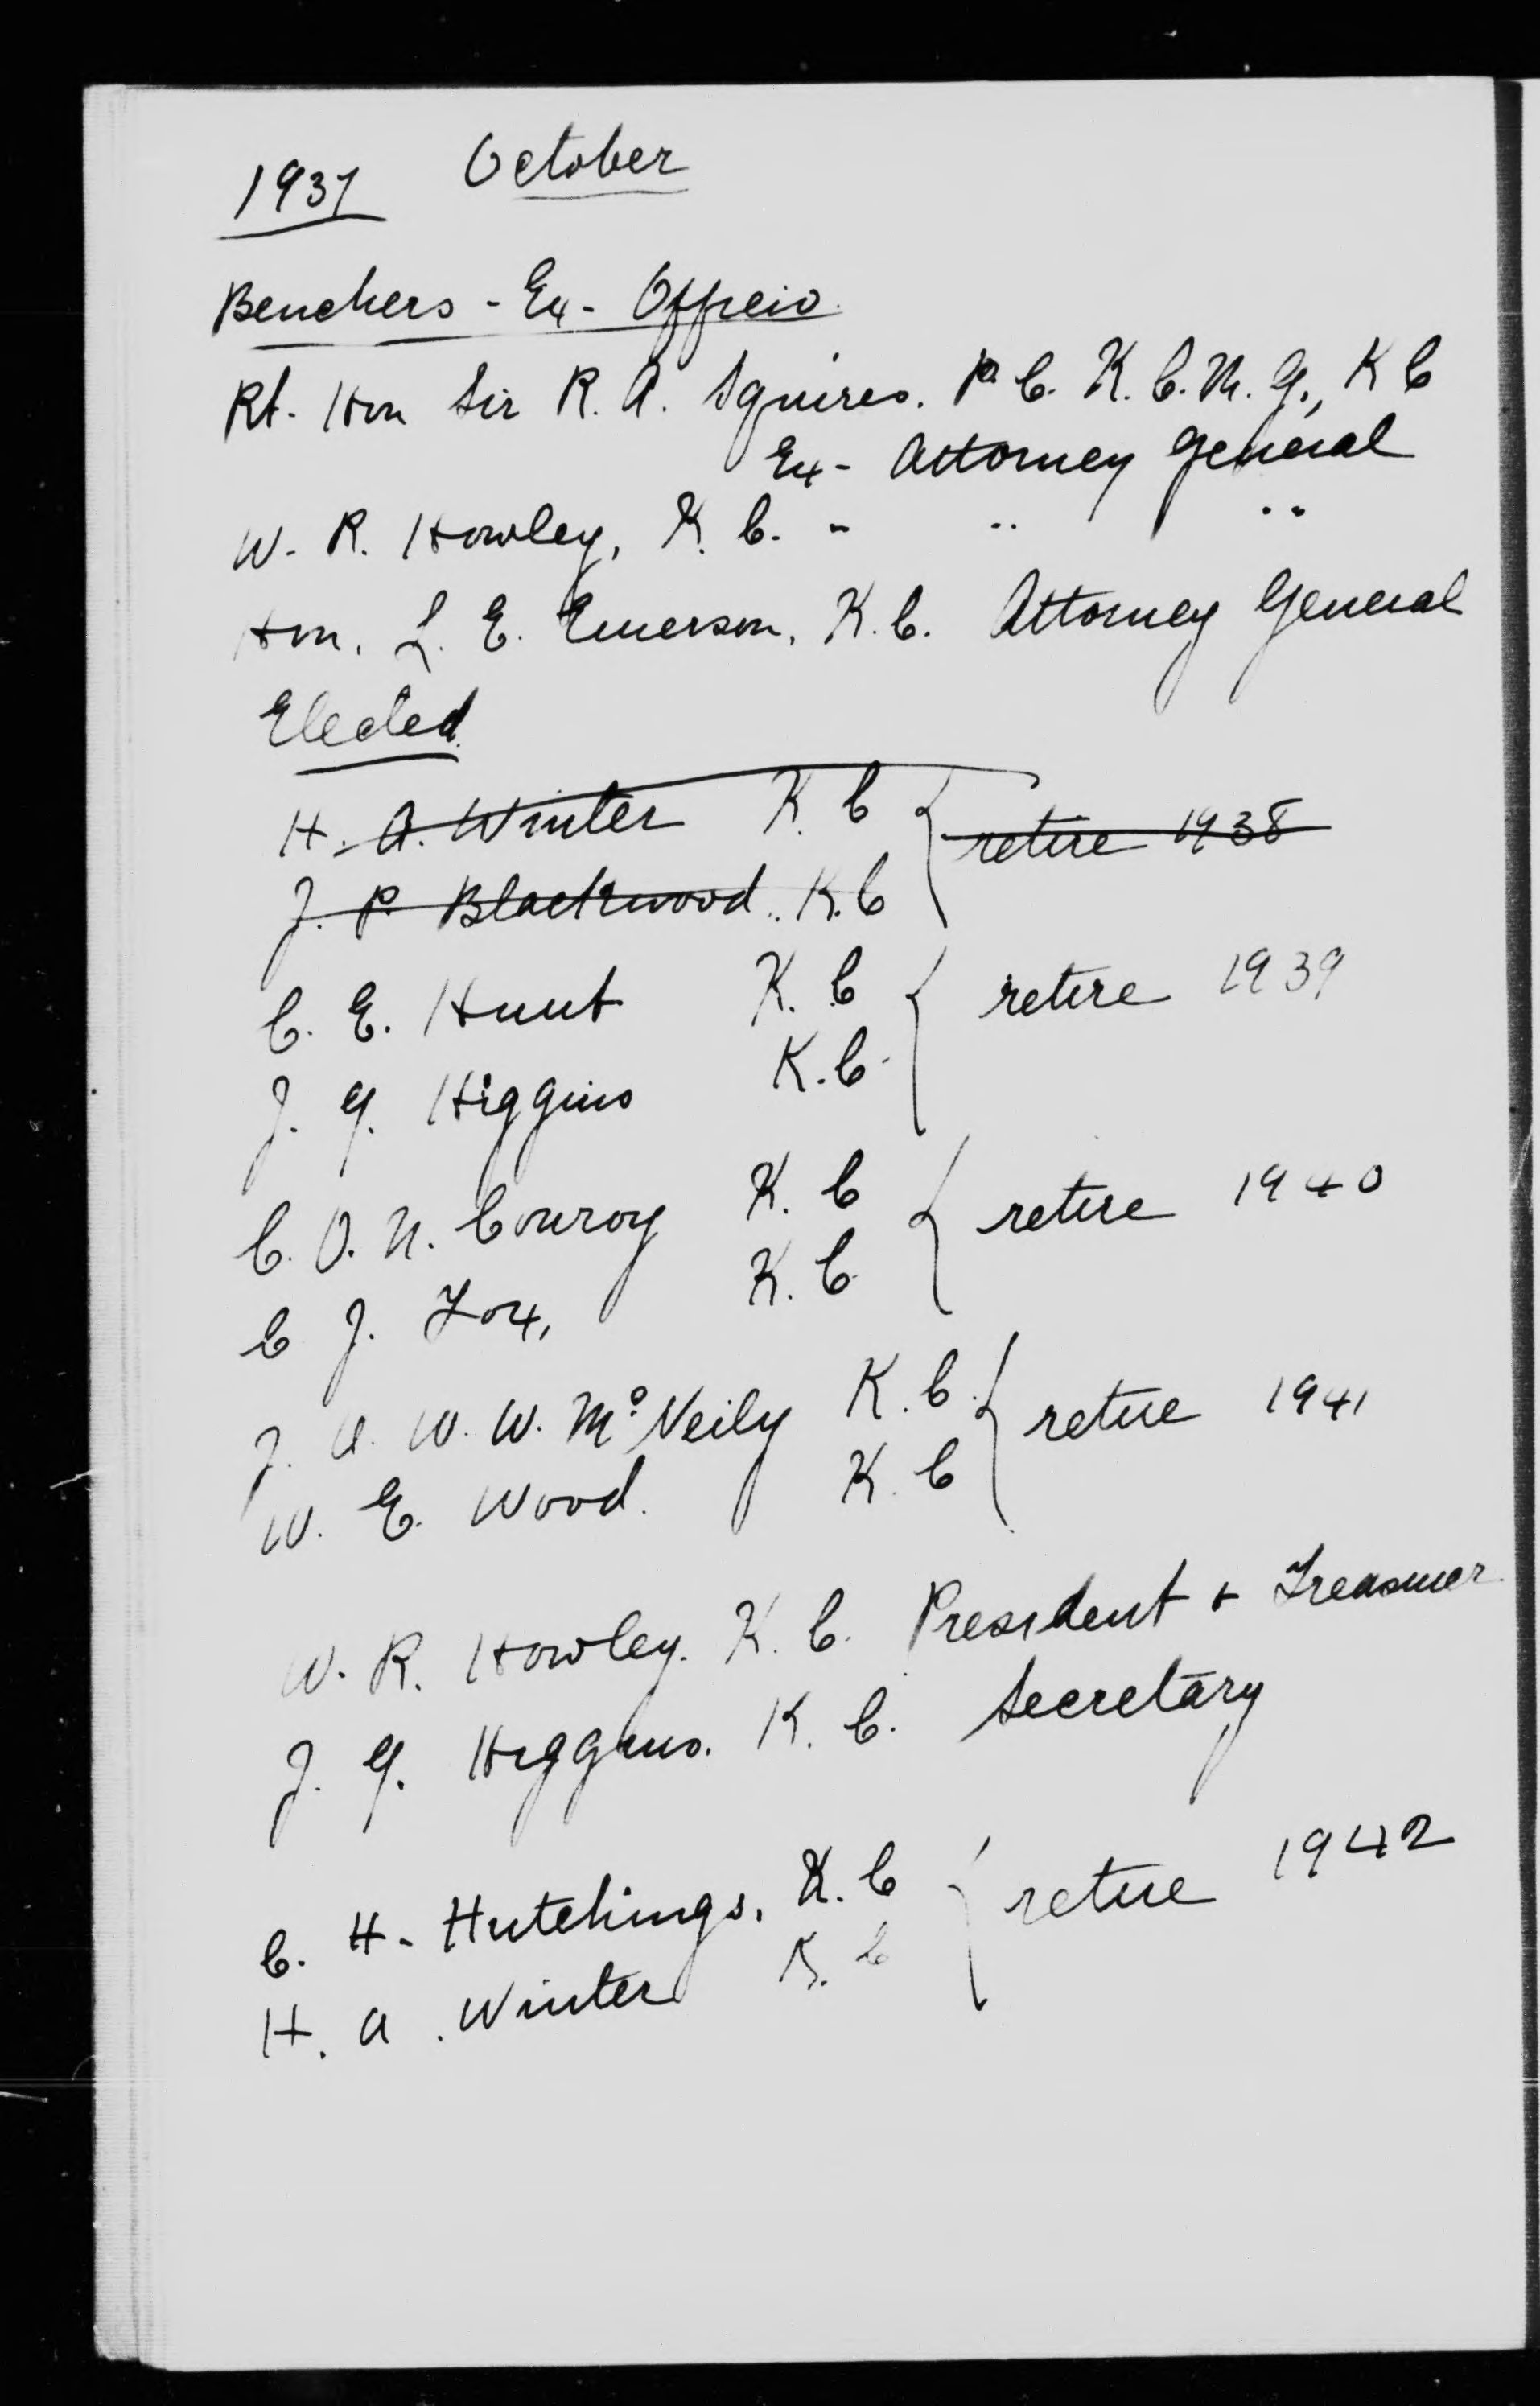 1937 October
Benchers - Ex - Officio
Rt. Hon Sir R. A. Squires. P. C. K. C. M. G., K C
Ex - Attorney General
W. R. Howley, K. C. " " "
Hon. L. E. Emerson, K. C. Attorney General
Elected.
H. A. Winter K. C { retire 1938
J. P. Blackwood. K. C
C. E. Hunt K. C { retire 1939
J. G. Higgins K. C.
C. O. N. Conroy K. C { retire 1940
C J. Fox, K. C.
J. A. W. W. McNeily K. C. { retire 1941
W. E. Wood. K. C
W. R. Howley. K. C. President + Treasurer
J. G. Higgins. K. C. Secretary
C. H. Hutchings, K. C { retire 1942
H. A. Winter K. C